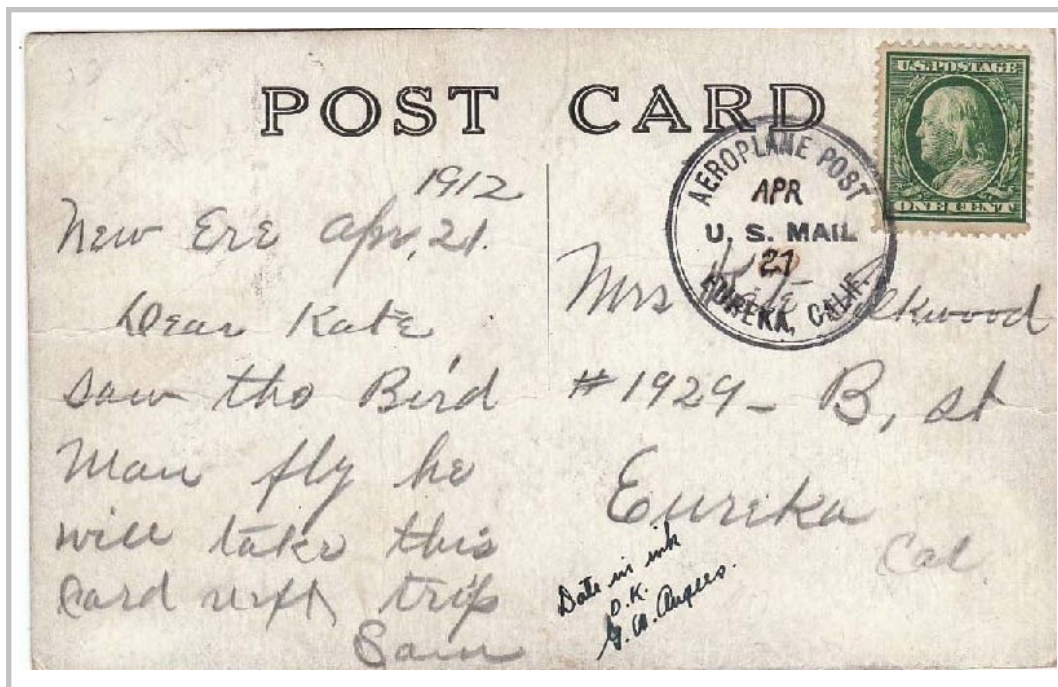 POST CARD
U.S. POSTAGE
ONE CENT
AEROPLANE POST
APR
U. S. MAIL
21
EUREKA, CALIF.
1912
New Ere Apr, 21.
Dear Kate
saw tho Bird
Man fly he
will take this
Card next trip
Sam
Mrs Kate
#1929 - B, st
Eureka
Cal
Date in ink
O.K.